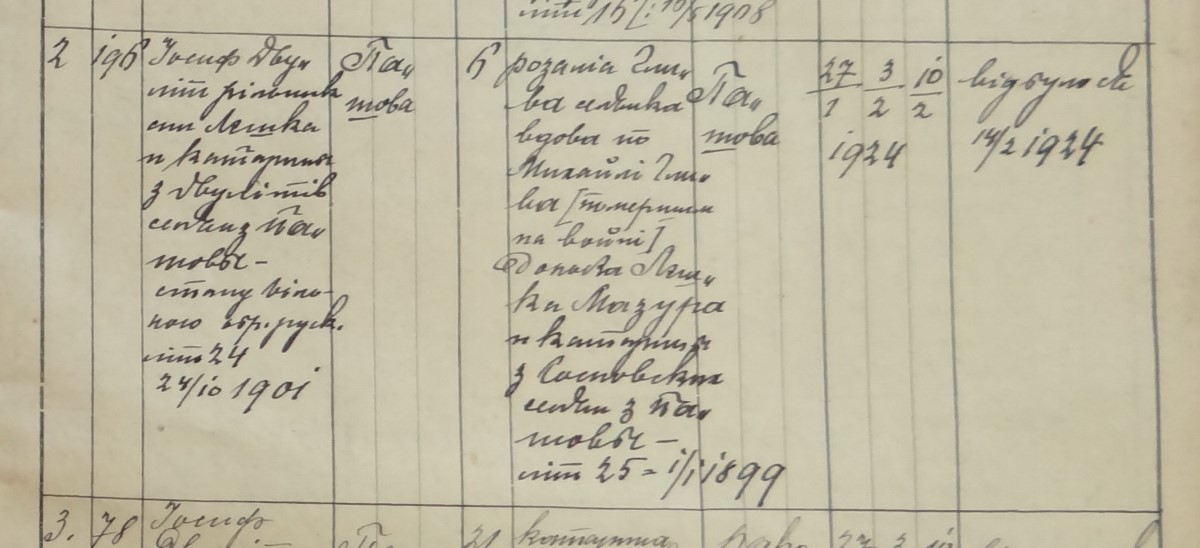 літ 15 [: 10/5 1908
2
196
Іосиф Дву„
літ рільник
син Лешка
и катарины
з Двулітів
селян з Па„
товы –
стану віль-
ного обр. руск.
літ 24
24/10 1901
Па„
това
6
розалія Гли„
ва селянка
вдова по
Михайлі Гли„
ва [помершим
на войні]
Донька Леш„
ка Мазура
и катарины
з Сосновских
селян з Па„
товы –
літ 25 = 1/1 1899
Па„
това
27 3 10
1 2 2
1924
відбулося
14/2 1924
3. 78 Іосиф
21 катарина
27 3 10